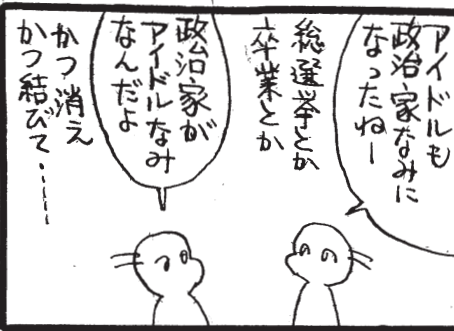 アイドルも
政治家なみに
なったねー
総選挙とか
卒業とか
政治家が
アイドルなみ
なんだよ
かつ消え
かつ結びて・・・・・